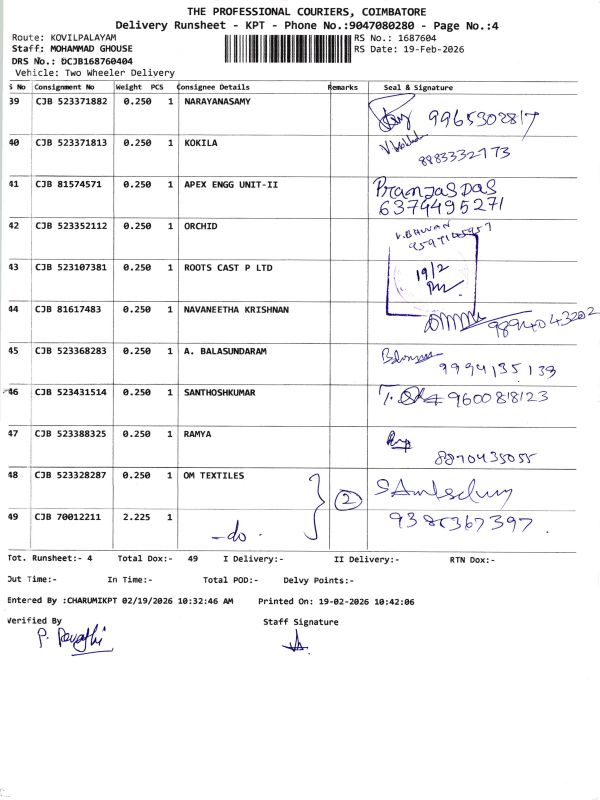 THE PROFESSIONAL COURIERS, COIMBATORE
Delivery Runsheet - KPT - Phone No.:9047080280 - Page No.:4
Route: KOVILPALAYAM RS No.: 1687604
Staff: MOHAMMAD GHOUSE RS Date: 19-Feb-2026
DRS No.: DCJB168760404
Vehicle: Two Wheeler Delivery
S No Consignment No Weight PCS Consignee Details Remarks Seal & Signature
39 CJB 523371882 0.250 1 NARAYANASAMY 9965302817
40 CJB 523371813 0.250 1 KOKILA 8983332773
41 CJB 81574571 0.250 1 APEX ENGG UNIT-II Pranjas Das
6379495271
42 CJB 523352112 0.250 1 ORCHID
43 CJB 523107381 0.250 1 ROOTS CAST P LTD 19/2
44 CJB 81617483 0.250 1 NAVANEETHA KRISHNAN 9894043202
45 CJB 523368283 0.250 1 A. BALASUNDARAM 9994135139
46 CJB 523431514 0.250 1 SANTHOSHKUMAR 9600818123
47 CJB 523388325 0.250 1 RAMYA
8890435055
48 CJB 523328287 0.250 1 OM TEXTILES 2
49 CJB 70012211 2.225 1 -do- 9385367397
Tot. Runsheet:- 4 Total Dox:- 49 I Delivery:- II Delivery:- RTN Dox:-
Out Time:- In Time:- Total POD:- Delvy Points:-
Entered By :CHARUMIKPT 02/19/2026 10:32:46 AM Printed On: 19-02-2026 10:42:06
Verified By Staff Signature